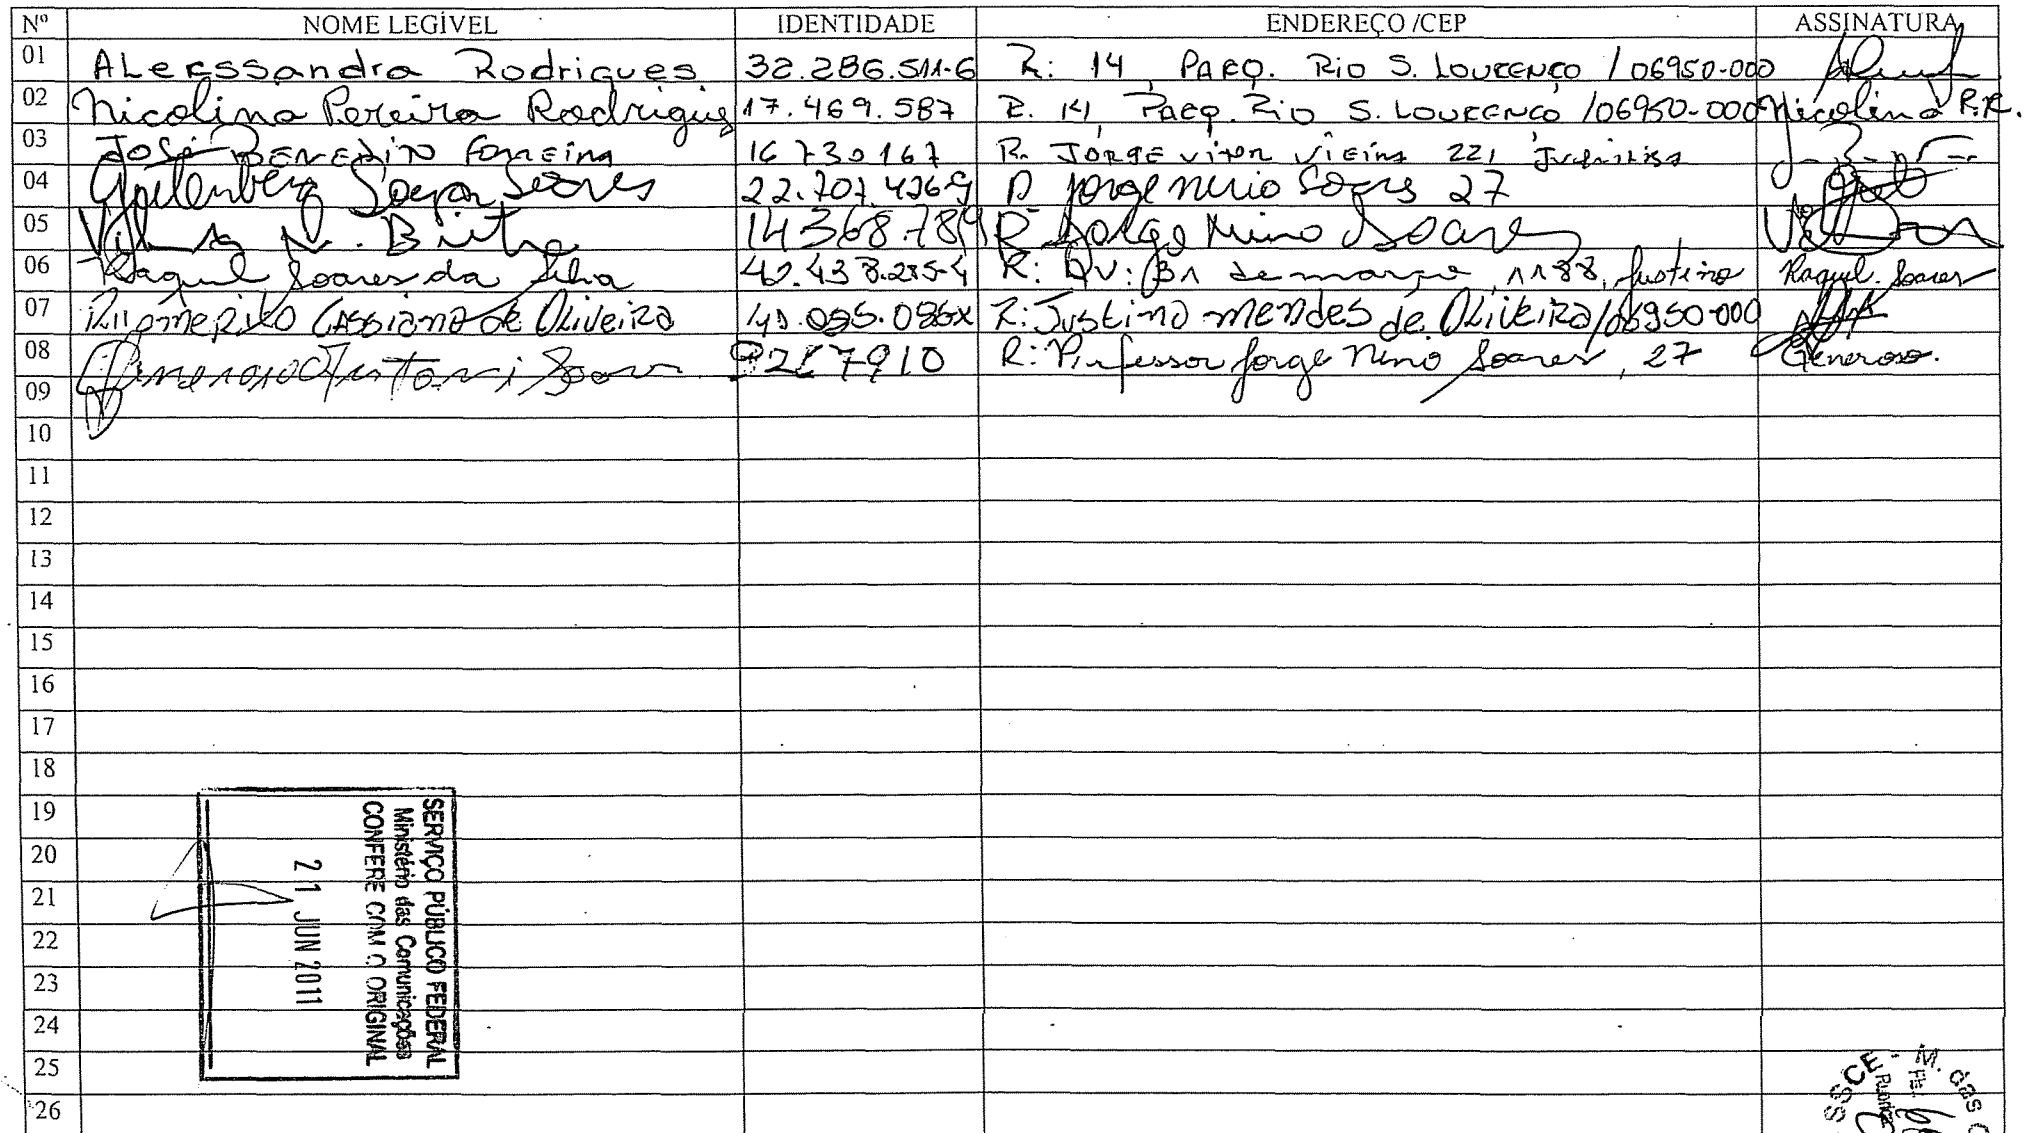 Nº NOME LEGÍVEL IDENTIDADE ENDEREÇO /CEP ASSINATURA
01 ALeessandra Rodrigues 32.286.511-6 R: 14 PARQ. Rio S. LOURENÇO / 06950-000
02 Nicolina Pereira Rodrigues 17.469.587 R. 14, PARQ. Rio S. LOURENÇO /06950-000 Nicolina P.R.
03 JOSÉ BENEDITO FERREIRA 16 730 167 R. JORGE VITOR VIEIRA 221
04 Soares 22.707.426-9 Jorge nerio Soares 27
05 Vilma N. Brito 14368.789 R Jorge Nino Soares
06 Raquel Soares da Silva 40.438.285-4 R: AV: 31 de março, 1188, Justino Raquel. Soares
07 Cassiano de Oliveira 41.095.086X R: Justino mendes de Oliveira/06950-000
08 Generoso Soares 9267910 R: Professor Jorge Nino Soares, 27 Generoso.
09
10
11
12
13
14
15
16
17
18
19
20
21
22
23
24
25
26
SERVIÇO PÚBLICO FEDERAL
Ministério das Comunicações
CONFERE COM O ORIGINAL
21 JUN 2011
M. das C
Fls.
Rubrica
SSCE